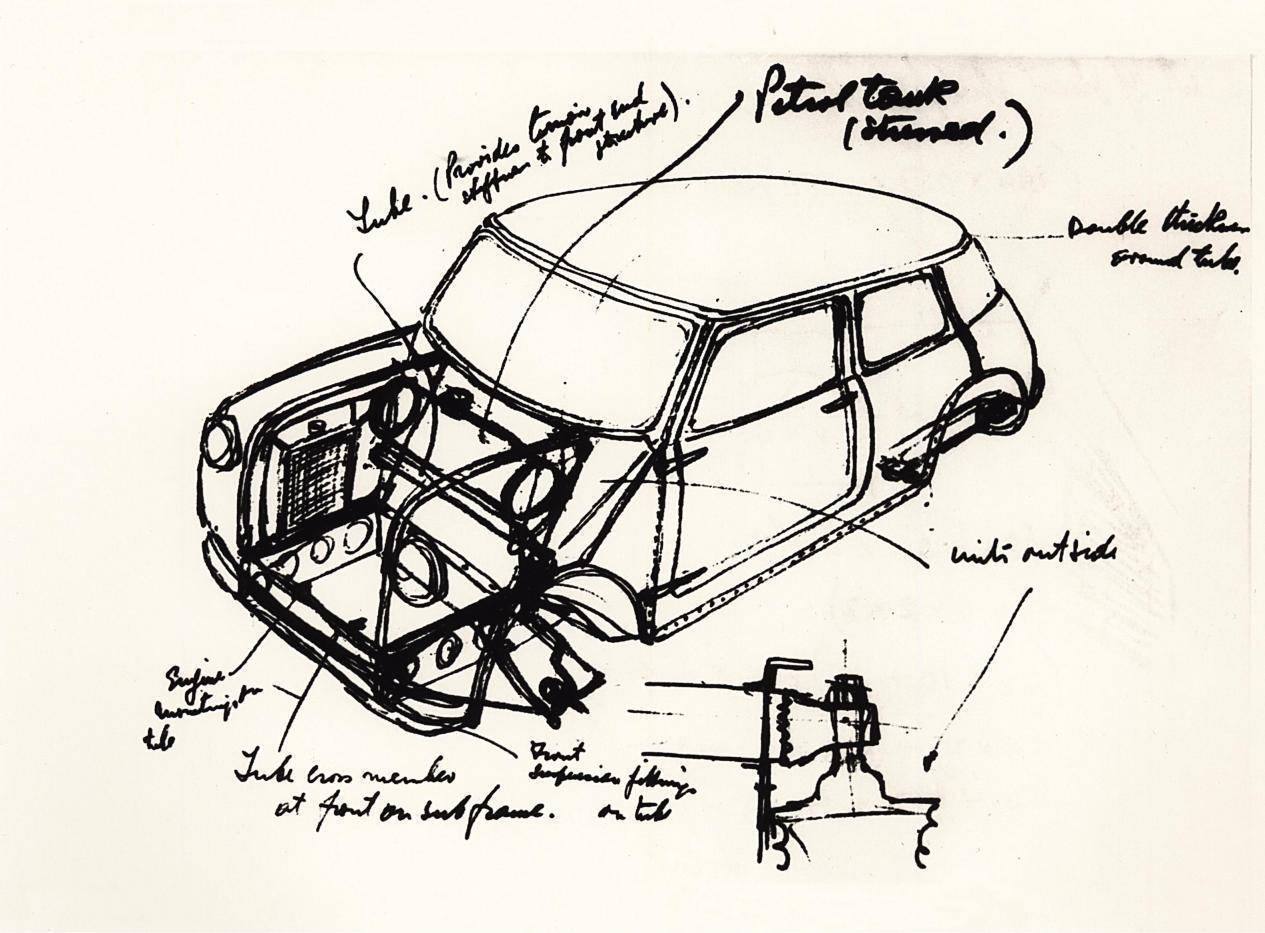 Petrol tank
(stressed.)
Tube. (Provides torsion and
stiffness to front end
structure).
Double thickness
around tube.
units outside
Engine
mountings on
tube
Tube cross member
at front on subframe.
Front
suspension fittings
on tube